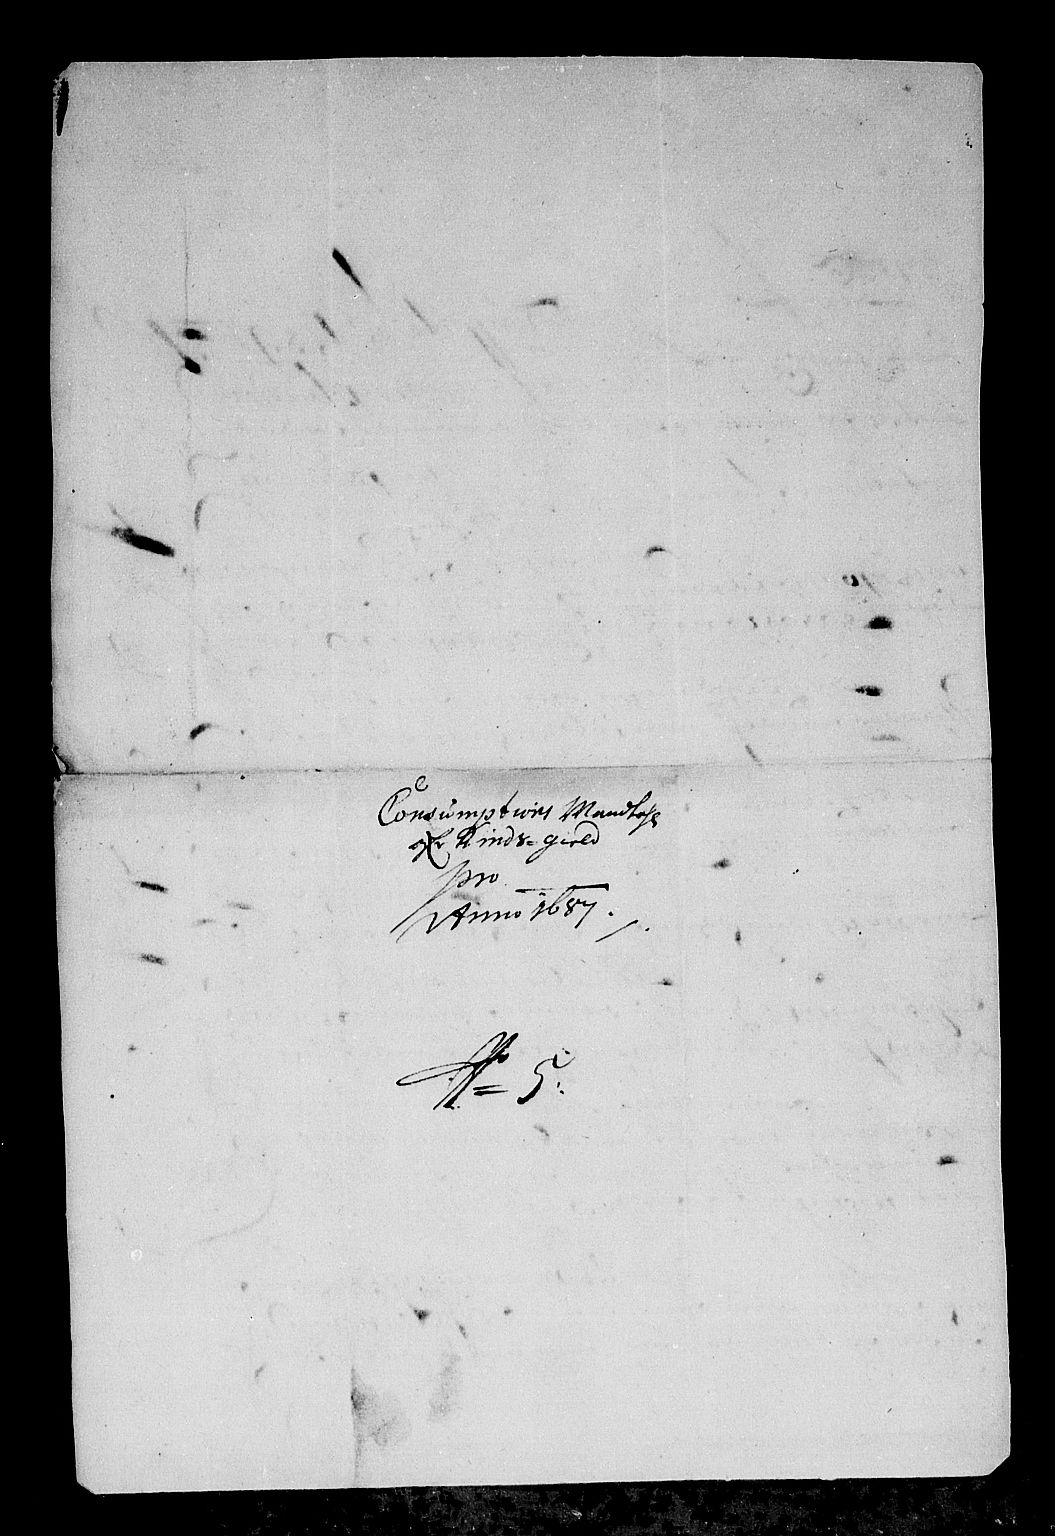 Consumptions Mandtahl
och Kinds=gield
pro
Anno 1687.
No 5.